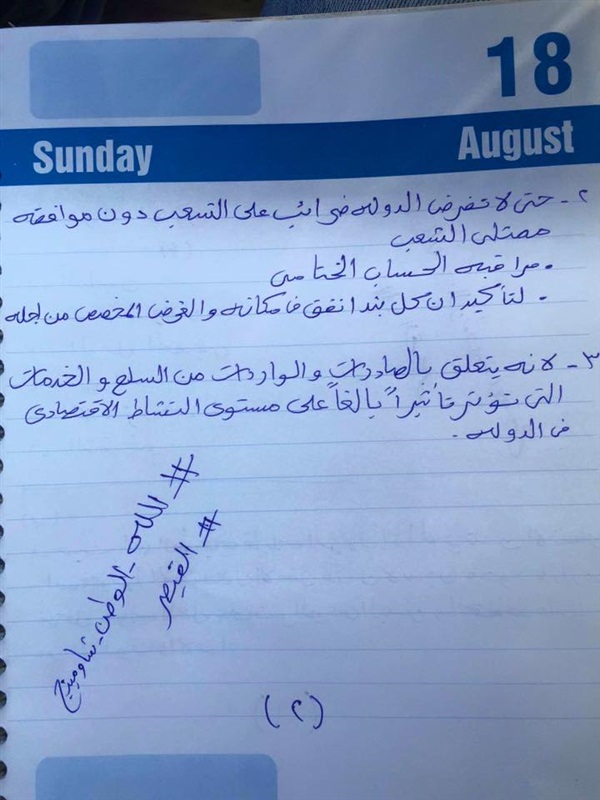 18
Sunday
August
٢- حتى لا تفرض الدوله ضرائب على الشعب دون موافقه
ممثلى الشعب
• مراقبه الحساب الختامى
• لتأكيد ان كل بند انفق فى مكانه والغرض المخصص من اجله
٣- لانه يتعلق بالصادرات والواردات من السلع والخدمات
التى تؤثر تأثيراً بالغاً على مستوى النشاط الاقتصادى
فى الدوله.
# الله_الوطن_شاومينج
# القيصر
(٢)